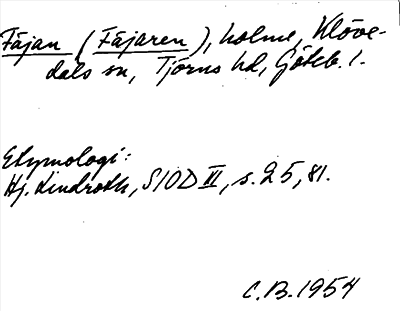 Fåjan (Fåjaren), holme, Klöve-
dals sn, Tjörns hd, Göteb. l.
Etymologi:
Hj. Lindroth, SIOD III, s. 25, 81.
C.B. 1954